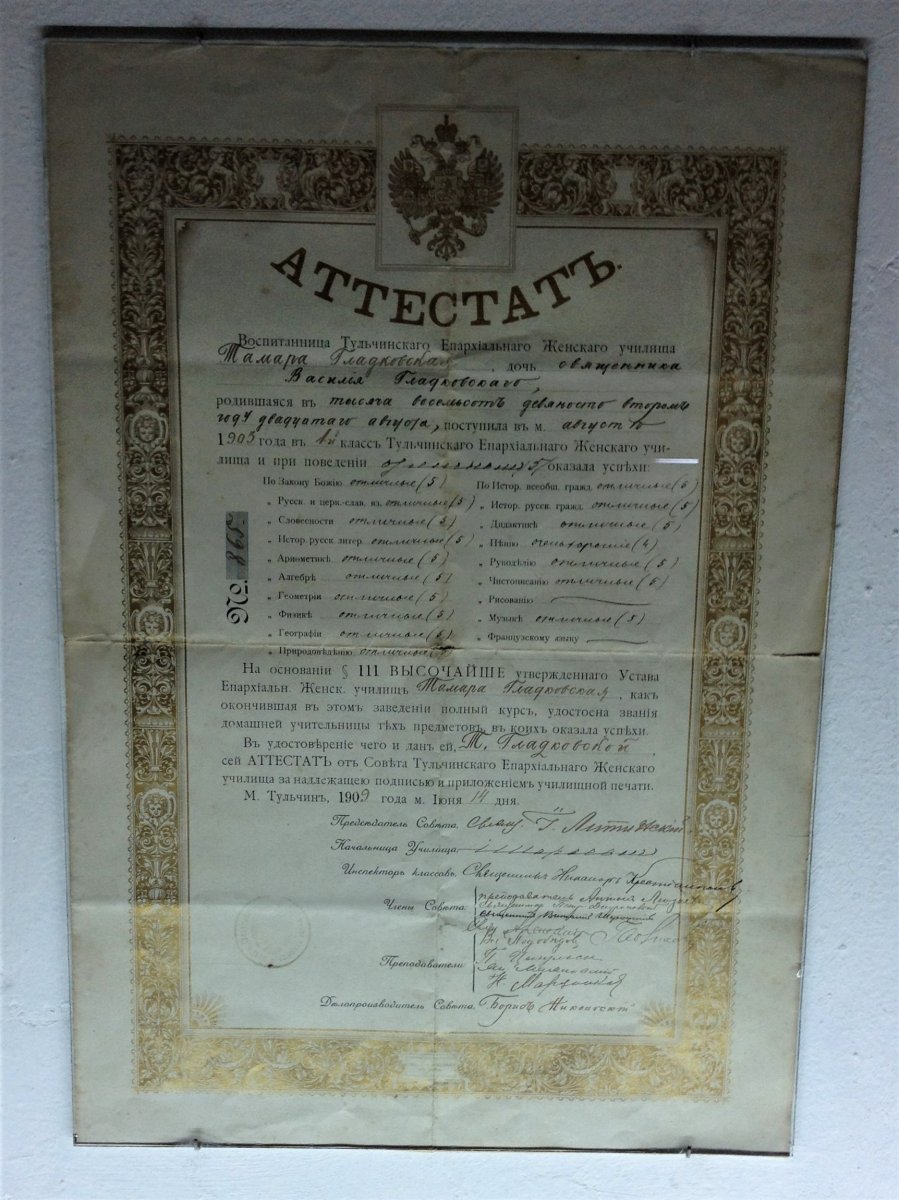 АТТЕСТАТЪ.
Воспитанница Тульчинскаго Епархіальнаго Женскаго училища
Тамара Гладковская, дочь священника
Василія Гладковскаго,
родившаяся въ тысяча восемьсотъ девяносто второмъ
году двадцатаго августа, поступила въ м. августѣ
1903 года въ классъ Тульчинскаго Епархіальнаго Женскаго учи-
лища и при поведеніи отличномъ (5) оказала успѣхи:
По Закону Божію отличные (5)
„ Русск. и церк.-слав. яз. отличные (5)
„ Словесности отличные (5)
„ Истор. русск. литер. отличные (5)
„ Ариѳметикѣ отличные (5)
„ Алгебрѣ отличные (5)
„ Геометріи отличные (5)
„ Физикѣ отличные (5)
„ Географіи отличные (5)
„ Природовѣдѣнію отличные (5)
По Истор. всеобщ. гражд. отличные (5)
„ Истор. русск. гражд. отличные (5)
„ Дидактикѣ отличные (5)
„ Пѣнію очень хорошіе (4)
„ Рукодѣлію отличные (5)
„ Чистописанію отличные (5)
„ Рисованію
„ Музыкѣ отличные (5)
„ Французскому языку
№. 865.
На основаніи § 111 ВЫСОЧАЙШЕ утвержденнаго Устава
Епархіальн. Женск. училищъ Тамара Гладковская, какъ
окончившая въ этомъ заведеніи полный курсъ, удостоена званія
домашней учительницы тѣхъ предметовъ, въ коихъ оказала успѣхи.
Въ удостовѣреніе чего и данъ ей, Т. Гладковской,
сей АТТЕСТАТЪ отъ Совѣта Тульчинскаго Епархіальнаго Женскаго
училища за надлежащею подписью и приложеніемъ училищной печати.
М. Тульчинъ, 1909 года м. Іюня 14 дня.
Предсѣдатель Совѣта, Свящ.
Начальница Училища,
Инспекторъ классовъ, Священникъ
Члены Совѣта: преподаватель
священникъ
священникъ
Преподаватели:
Дѣлопроизводитель Совѣта, Борисъ